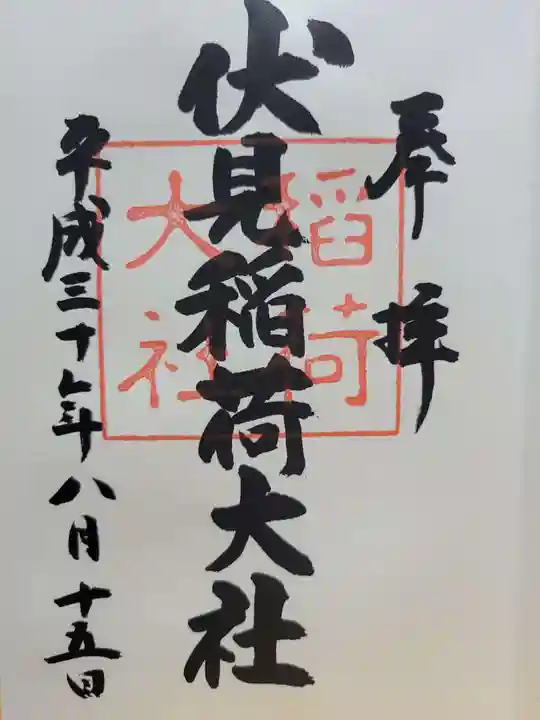 奉拝
伏見稲荷大社
稲荷
大社
平成三十年八月十五日